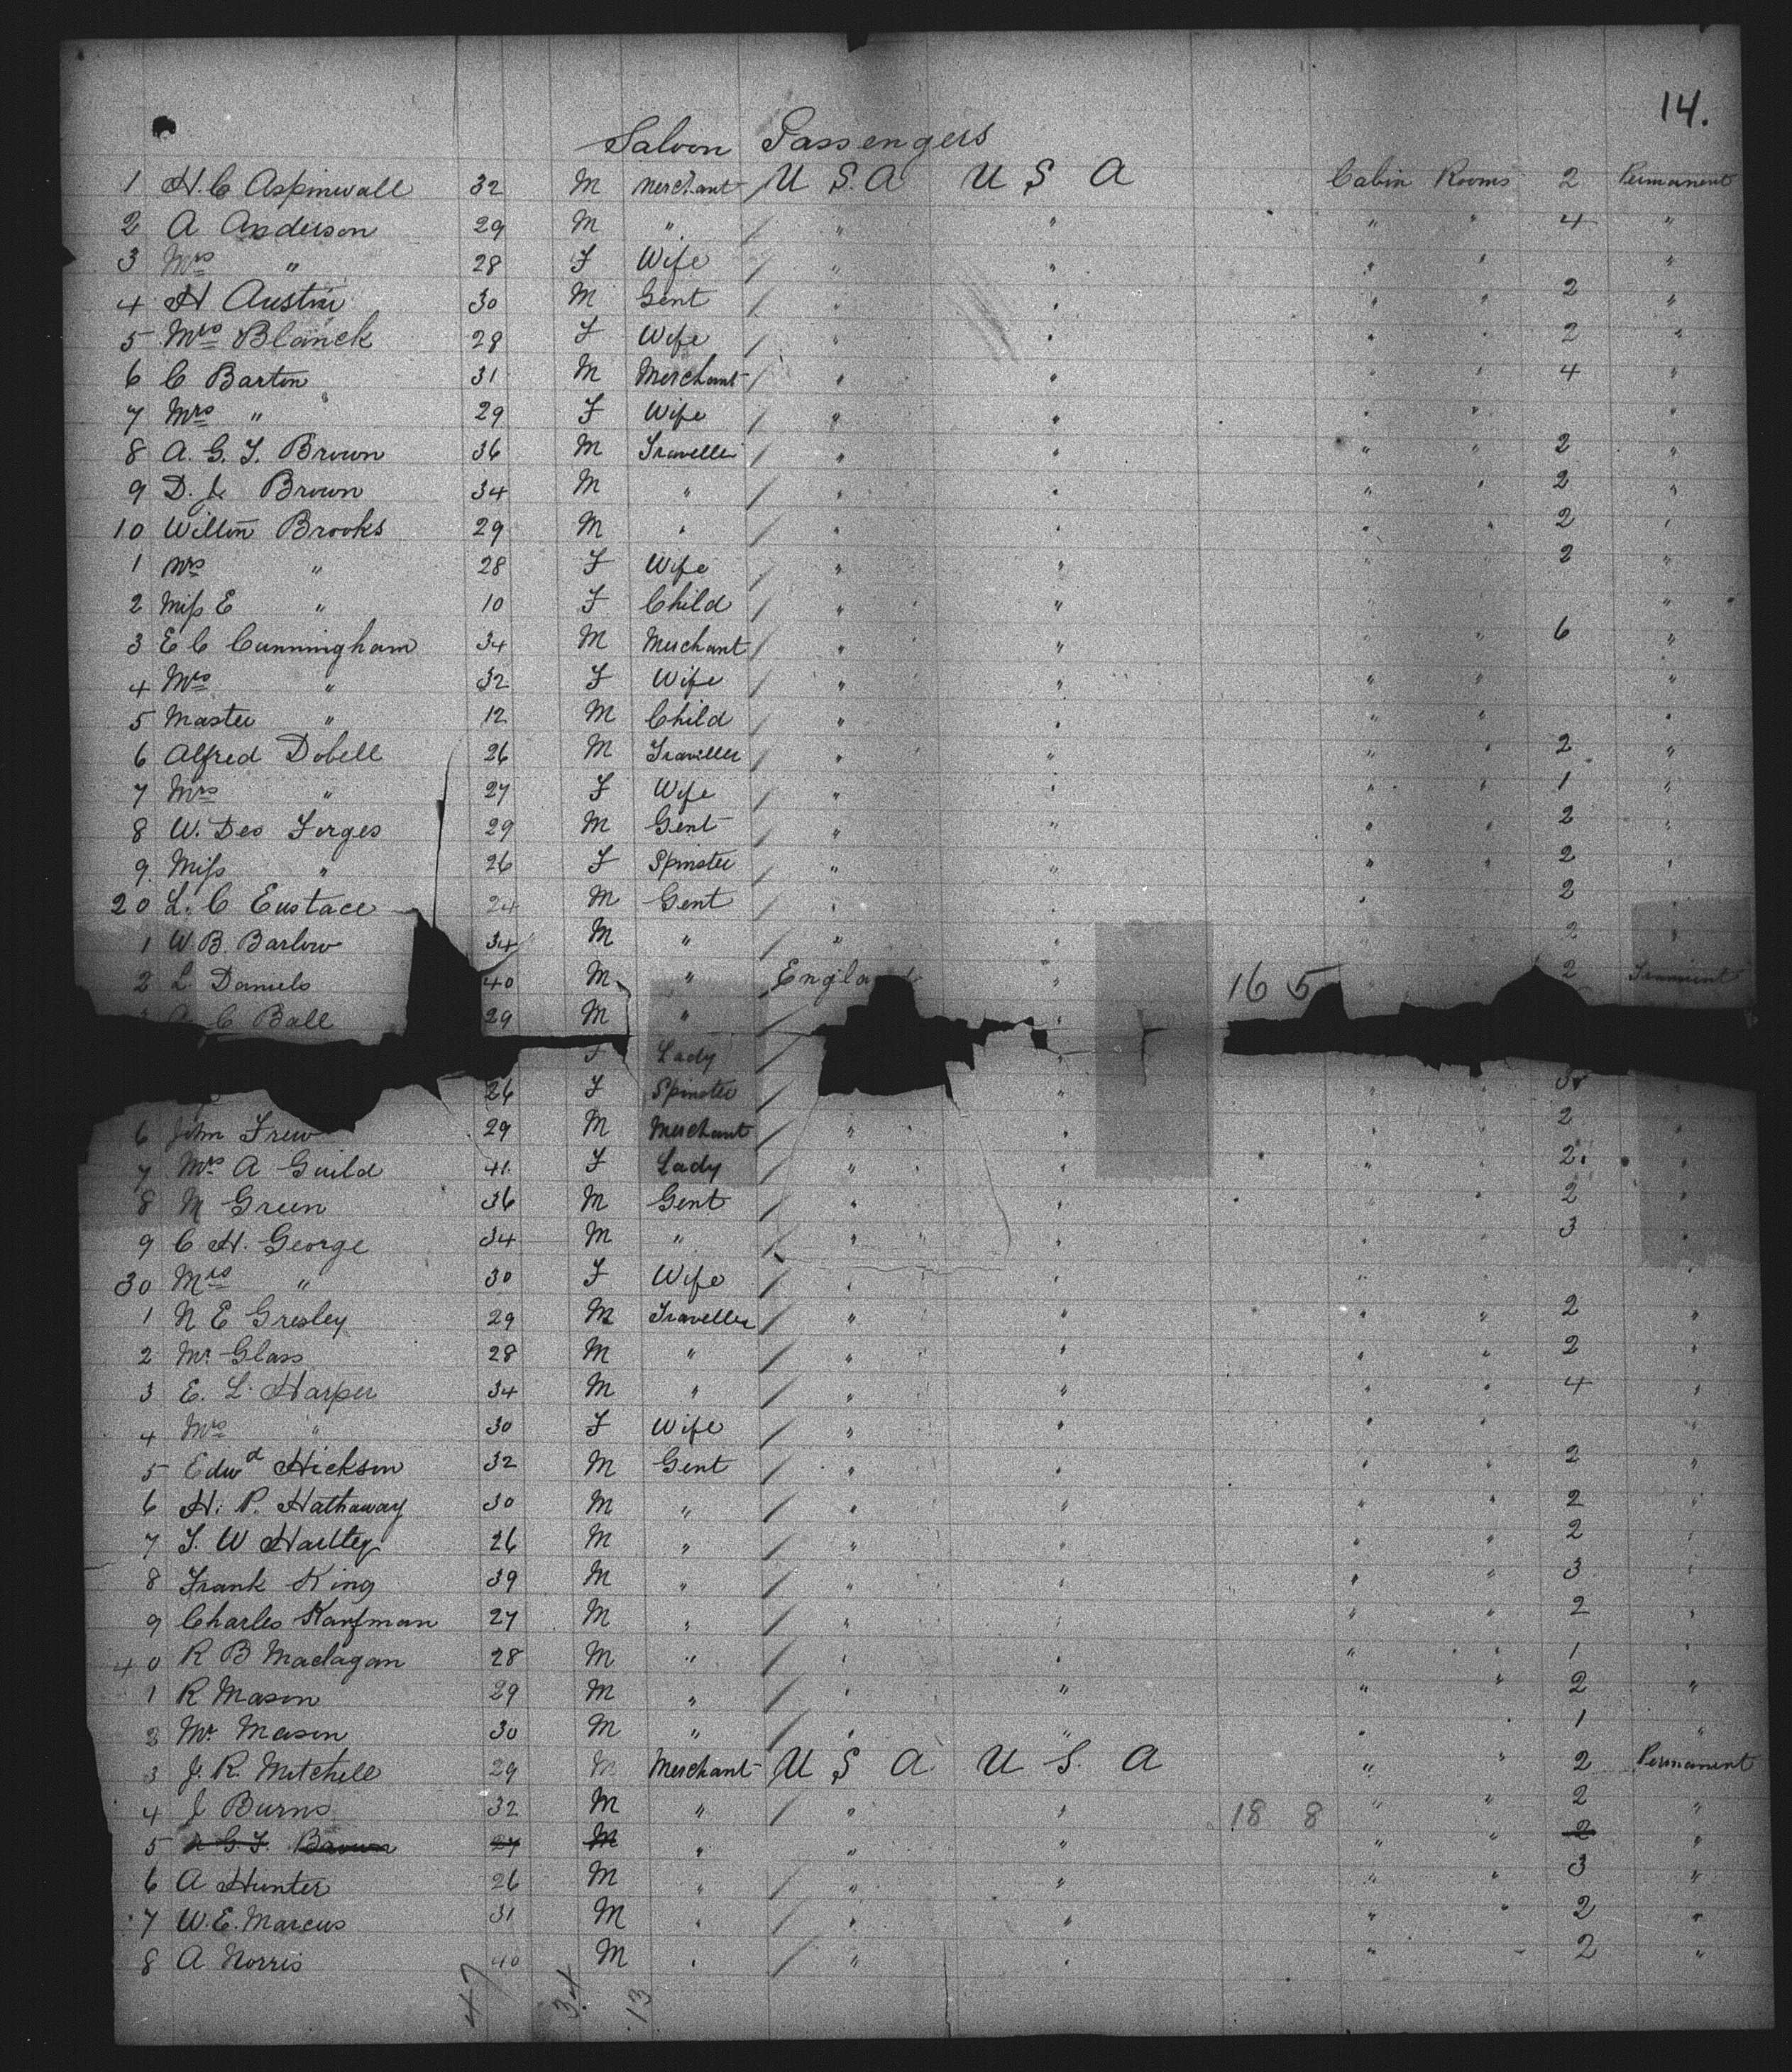 14.
Saloon Passengers
1 H. C Aspinwall 32 M Merchant / U S. A U S A Cabin Rooms 2 Permanent
2 A Anderson 29 M " / " " " " 4 "
3 Mrs " 28 F Wife / " " " " "
4 H Austin 30 M Gent / " " " " 2 "
5 Mrs Blanck 28 F Wife / " " " " 2 "
6 C Barton 31 M Merchant / " " " " 4 "
7 Mrs " 29 F Wife / " " " " "
8 A. G. F. Brown 36 M Traveller / " " " " 2 "
9 D. J. Brown 34 M " / " " " " 2 "
10 Willm Brooks 29 M " / " " " " 2 "
1 Mrs " 28 F Wife / " " " " 2 "
2 Miss E " 10 F Child / " " "
3 E C Cunningham 34 M Merchant / " " " " 6 "
4 Mrs " 32 F Wife / " " " " "
5 Master " 12 M Child / " " " " "
6 Alfred Dobell 26 M Traveller / " " " " 2 "
7 Mrs " 27 F Wife / " " " " 1 "
8 W. Des Forges 29 M Gent / " " " " 2 "
9. Miss " 26 F Spinster / " " " " 2 "
20 L. C Eustace 24 M Gent / " " " 2
1 W B. Barlow 34 M " / " " 2 "
2 L. Daniels 40 M " England " 16 5 " 2 Transient
C Ball 29 M " / "
F Lady / "
26 F Spinster / " " "
6 John Frew 29 M Merchant / " " " " 2 "
7 Mrs A Guild 41 F Lady / " " " " 2 "
8 M Green 36 M Gent / " " " " 2 "
9 C H. George 34 M " / " " " " 3 "
30 Mrs " 30 F Wife / " " " " "
1 N E Gresley 29 M Traveller / " " " " 2 "
2 Mr Glass 28 M " / " " " " 2 "
3 E. L. Harper 34 M " / " " " " 4 "
4 Mrs " 30 F Wife / " " " " "
5 Edwd Hickson 32 M Gent / " " " " 2 "
6 H. P. Hathaway 30 M " / " " " " 2 "
7 T. W Hartley 26 M " / " " " " 2 "
8 Frank King 39 M " / " " " " 3 "
9 Charles Kaufman 27 M " / " " " " 2 "
40 R B Maclagan 28 M " / " " " " 1 "
1 R Mason 29 M " / " " " " 2 "
2 Mr Mason 30 M " / " " " " 1 "
3 J. R. Mitchell 29 M Merchant U S A U S. A " " 2 Permanent
4 J Burns 32 M " / " " 18 8 " " 2 "
5 A G. F. Brown 27 M " " " " " 2 "
6 A Hunter 26 M " / " " " " 3 "
7 W. E. Marcus 31 M " / " " " " 2 "
8 A Norris 40 M " / " " " " 2 "
47 34 13